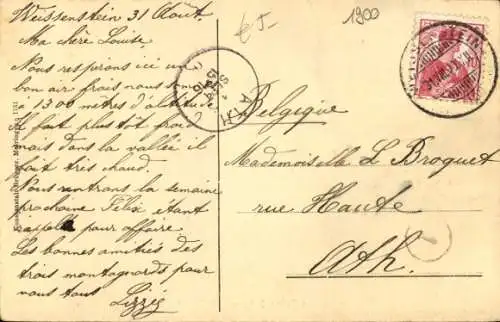 Weissenstein 31 Aout.
Ma chère Louise,
Nous respirons ici un
bon air frais nous sommes
à 1300 mètres d'altitude
Il fait plus tôt froid
mais dans la vallée il
fait très chaud.
Nous rentrons la semaine
prochaine Félix étant
appelé pour affaire.
Les bonnes amitiés des
trois montagnards pour
vous tous Lizzie
€5-
1900
ATH
WEISSENSTEIN
Belgique
Mademoiselle L Broquet
rue Haute
Ath.